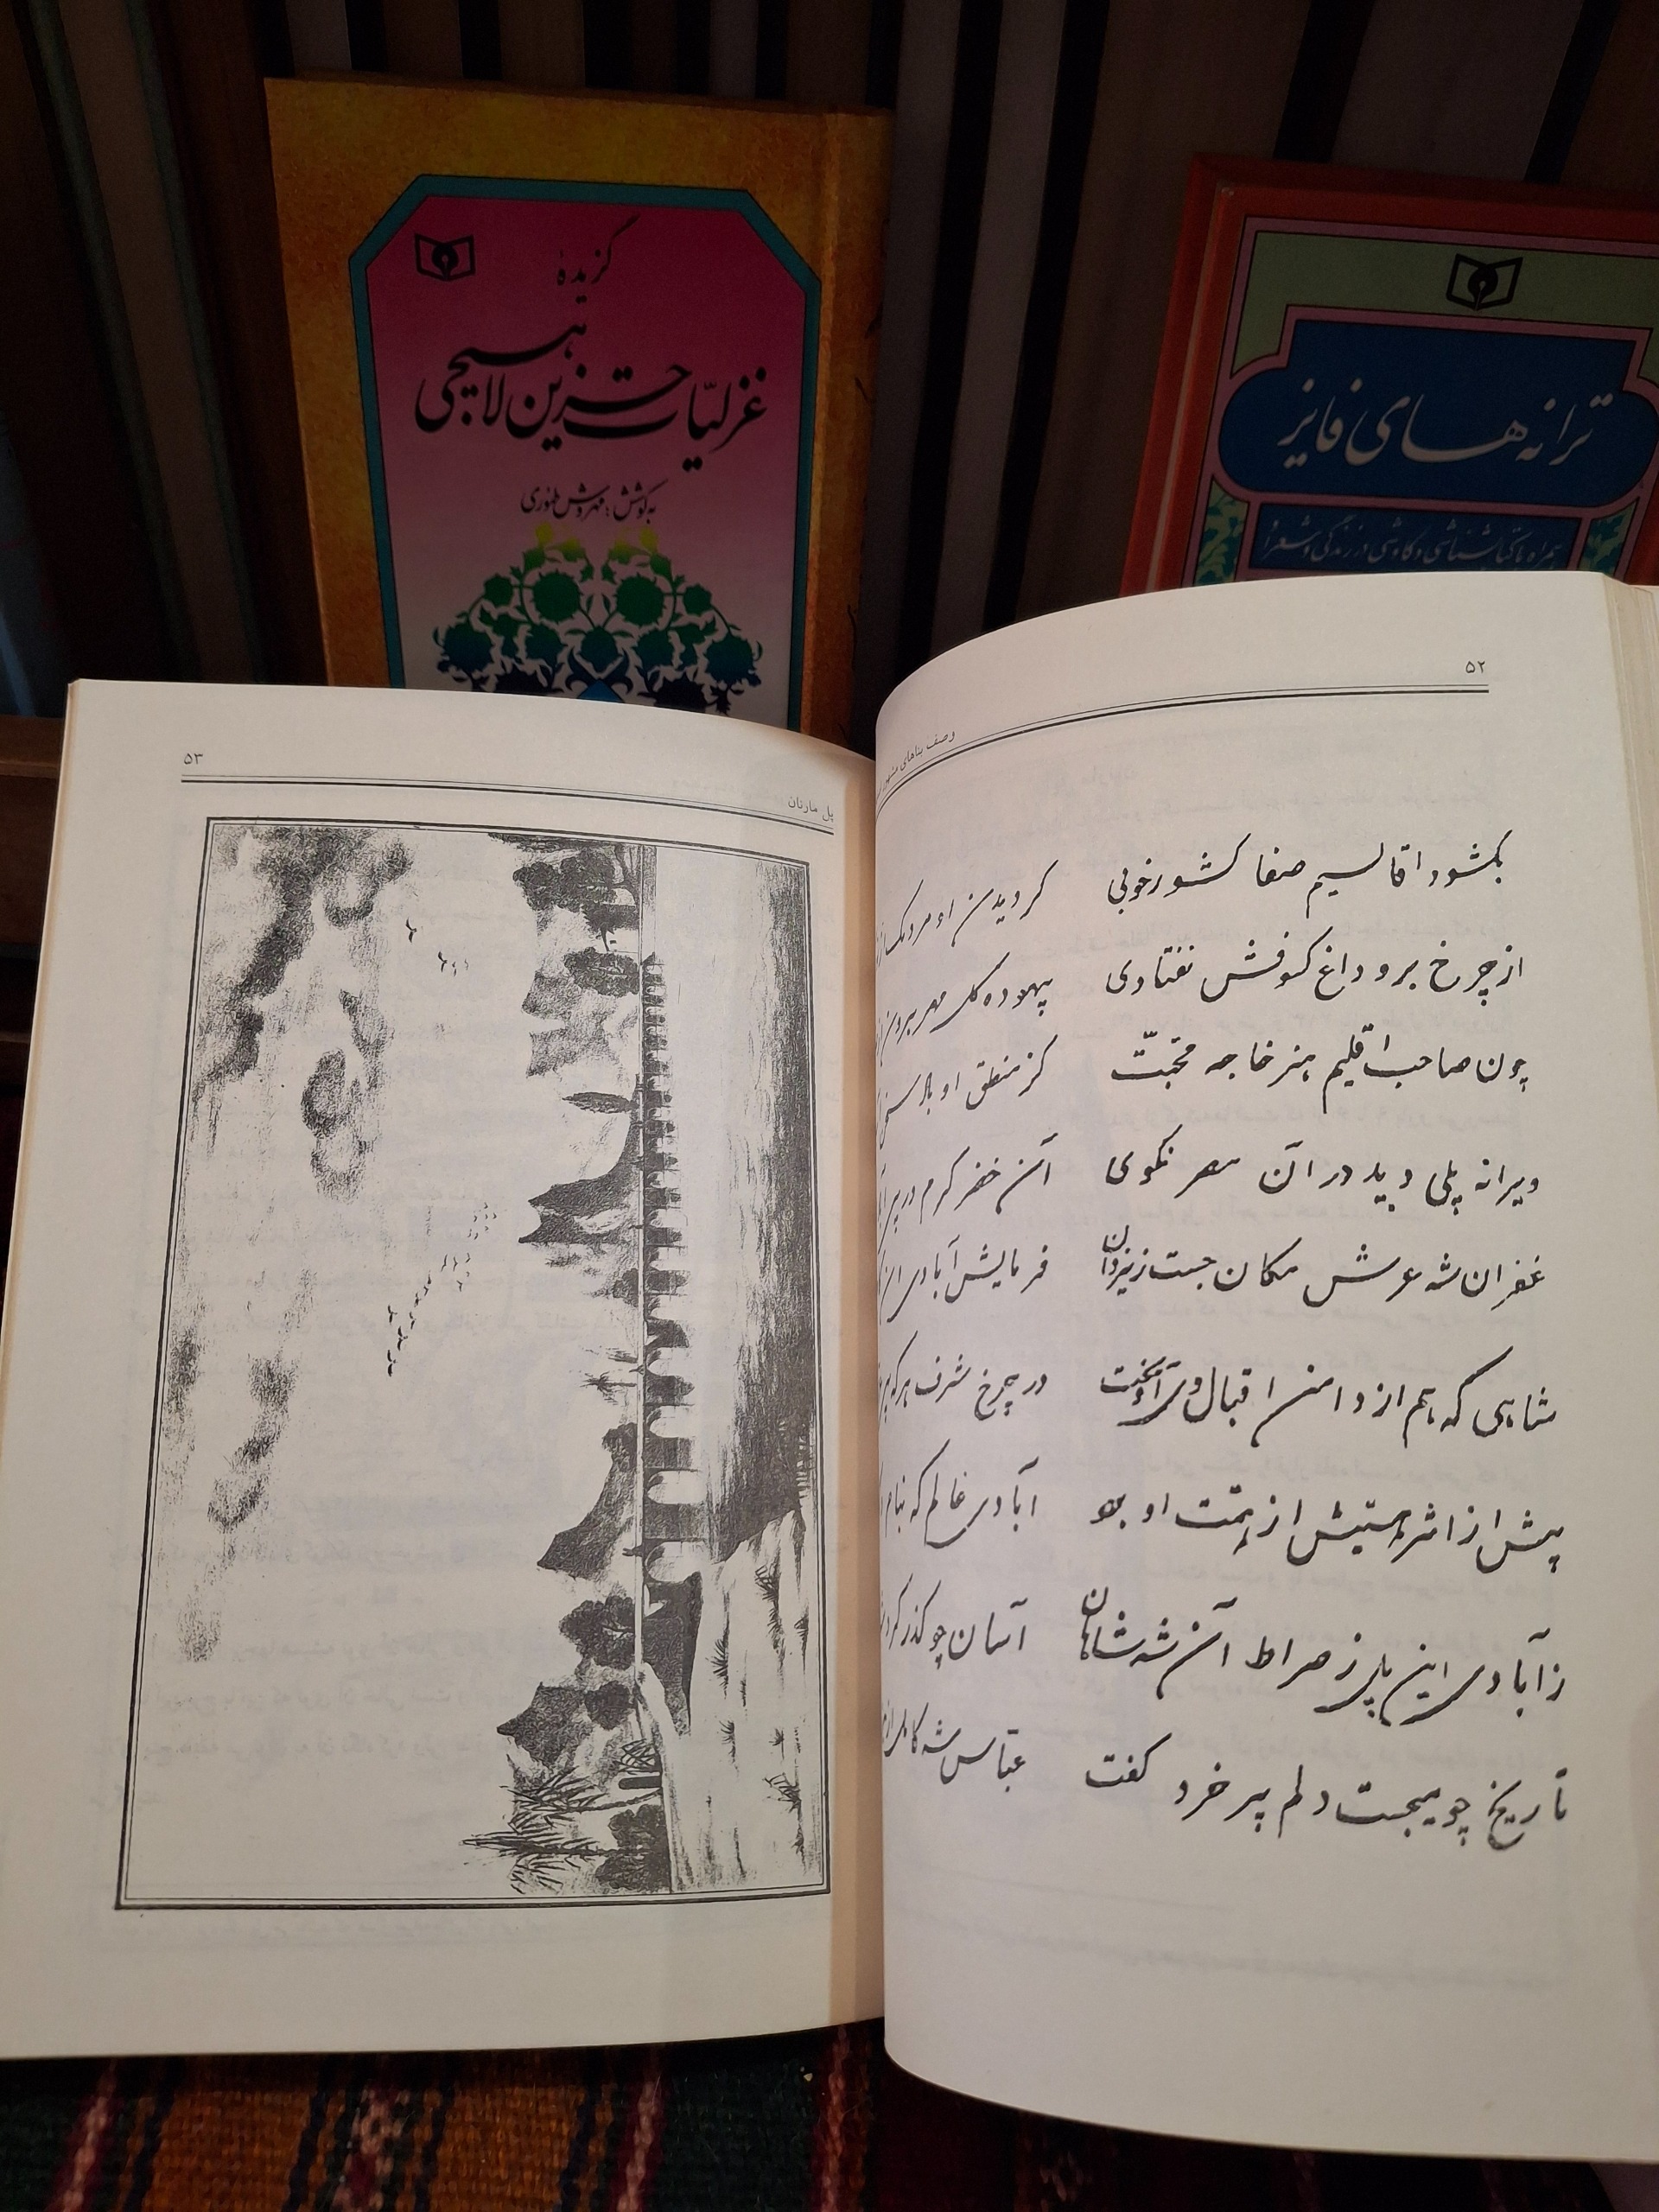 گزیدهٔ
غزلیّات حزین لاهیجی
به کوشش: مهروش طهوری
ترانه‌های فایز
همراه با کتابشناسی و کاوشی در زندگی و شعر او
۵۲
وصف بناهای مشهور
بکشود اقالیم صفا کشور خوبی
گردیدن او مردمک
از چرخ برو داغ کسوفش نفتادی
پهلو ده گل مهر بیرون
چون صاحب اقلیم هنر خاجه محبّت
کز منطق او بلا
ویرانه پلی دید در آن مصر نکوی
آن خضر کرم در
غفران شه عرش مکان جست ز یزدان
فرمایش آبادی این
شاهی که هم از دامن اقبال وی آویخت
در چرخ شرف هر که
پیش از اثر هستیش از همّت او بود
آبادی عالم که بنام
ز آبادی این پل ز صراط آن شه شاهان
آسان چو گذر کرد
تاریخ چو میجست دلم پیر خرد گفت
عبّاس شه کامل
۵۳
پل مارنان